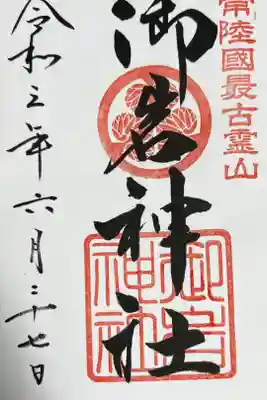 常陸國最古霊山
御岩神社
御岩神社
令和三年六月二十七日